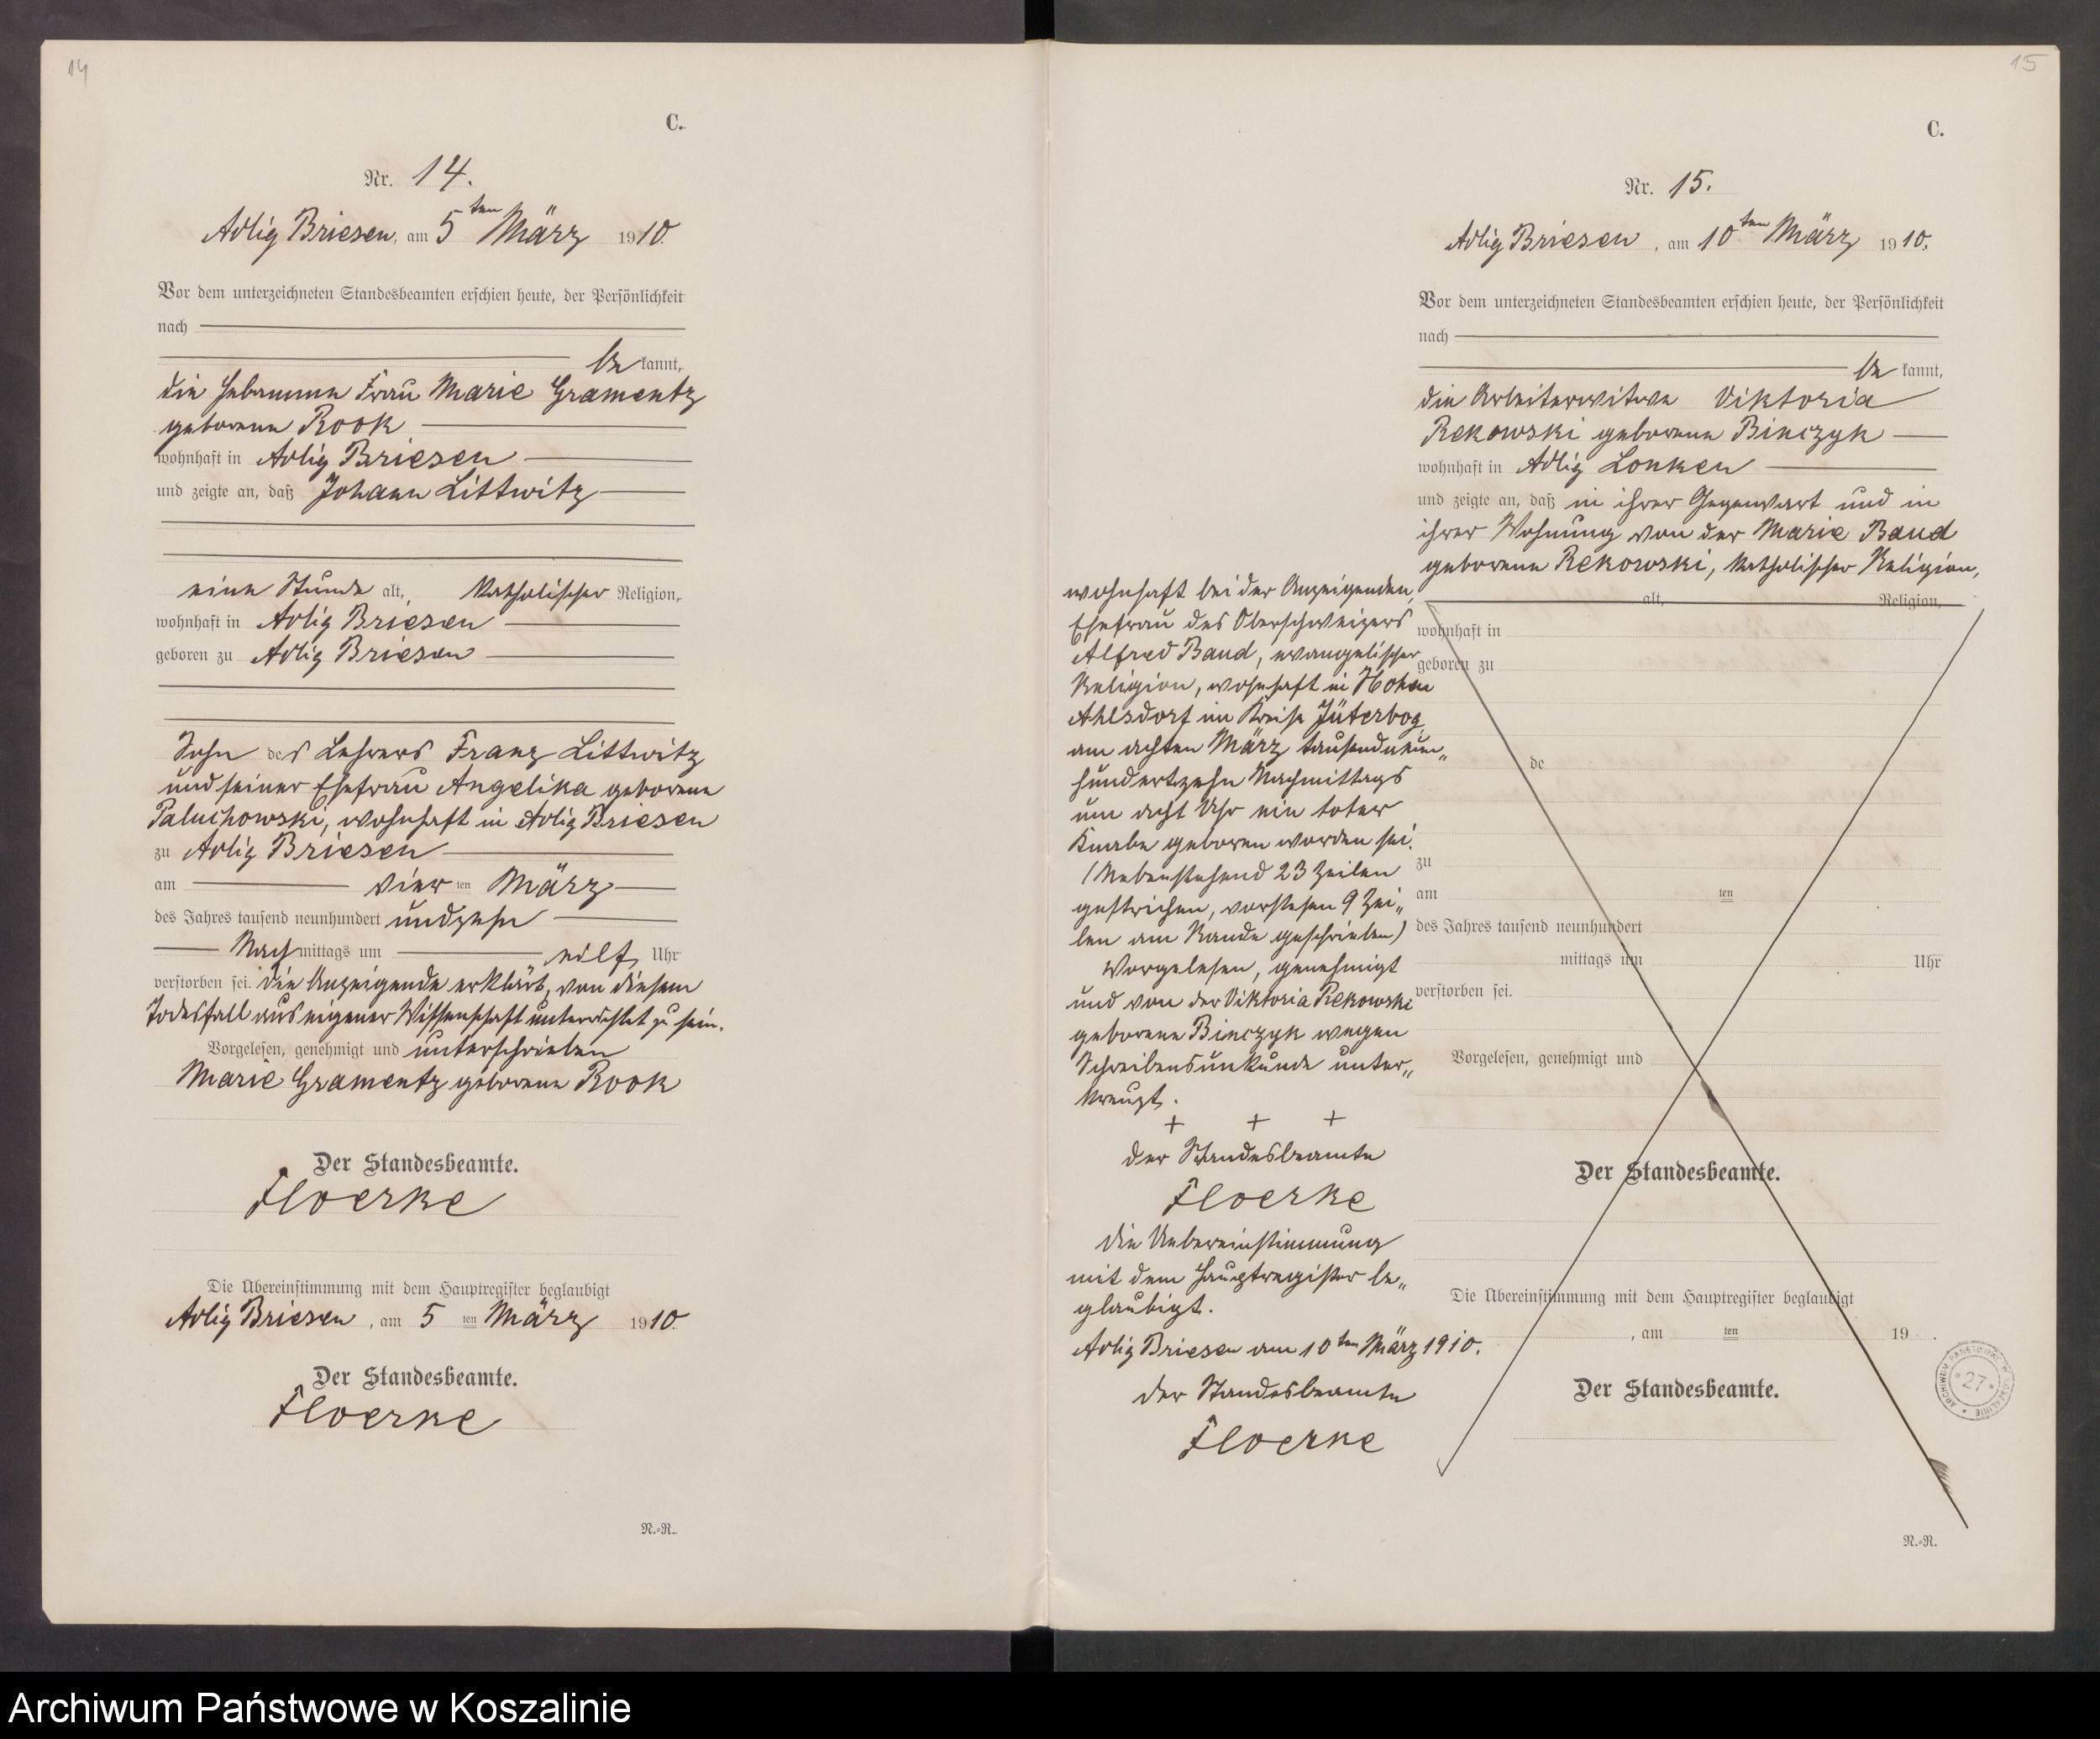 14
C.
Nr. 14.
Adlig Briesen, am 5ten März 1910.
Vor dem unterzeichneten Standesbeamten erschien heute, der Persönlichkeit
nach
be kannt,
die Hebamme Frau Marie Gramentz
geborene Rook
wohnhaft in Adlig Briesen
und zeigte an, daß Johann Littwitz
eine Stunde alt, katholischer Religion,
wohnhaft in Adlig Briesen
geboren zu Adlig Briesen
Sohn des Lehrers Franz Littwitz
und seiner Ehefrau Angelika geborene
Paluchowski, wohnhaft in Adlig Briesen
zu Adlig Briesen
am vier ten März
des Jahres tausend neunhundert undzehn
Nach mittags um elf Uhr
verstorben sei. Die Anzeigende erklärt, von diesem
Todesfall aus eigener Wissenschaft unterrichtet zu sein.
Vorgelesen, genehmigt und unterschrieben
Marie Gramentz geborene Rook
Der Standesbeamte.
Floerke
Die Übereinstimmung mit dem Hauptregister beglaubigt
Adlig Briesen, am 5 ten März 1910.
Der Standesbeamte.
Floerke
N.=R.
15
C.
Nr. 15.
Adlig Briesen, am 10ten März 1910.
Vor dem unterzeichneten Standesbeamten erschien heute, der Persönlichkeit
nach
be kannt,
die Arbeiterwitwe Viktoria
Rekowski geborene Binczyk
wohnhaft in Adlig Lonken
und zeigte an, daß in ihrer Gegenwart und in
ihrer Wohnung von der Marie Baud
geborene Rekowski, katholischer Religion,
wohnhaft bei der Anzeigenden,
Ehefrau des Oberschweizers
Alfred Baud, evangelischer
Religion, wohnhaft in Hohen
Ahlsdorf im Kreise Jüterbog,
am achten März tausendneun„
hundertzehn Nachmittags
um acht Uhr ein toter
Knabe geboren worden sei.
(Nebenstehend 23 Zeilen
gestrichen, vorstehen 9 Zei„
len am Rande geschrieben)
Vorgelesen, genehmigt
und von der Viktoria Rekowski
geborene Binczyk wegen
Schreibensunkunde unter„
kreuzt.
+ + +
Der Standesbeamte
Floerke
Die Uebereinstimmung
mit dem Hauptregister be„
glaubigt.
Adlig Briesen am 10ten März 1910.
Der Standesbeamte
Floerke
alt, Religion,
wohnhaft in
geboren zu
de
zu
am ten
des Jahres tausend neunhundert
mittags um Uhr
verstorben sei.
Vorgelesen, genehmigt und
Der Standesbeamte.
Die Übereinstimmung mit dem Hauptregister beglaubigt
, am ten 19 .
Der Standesbeamte.
ARCHIWUM PAŃSTWOWE W KOSZALINIE
* 27 *
N.=R.
Archiwum Państwowe w Koszalinie